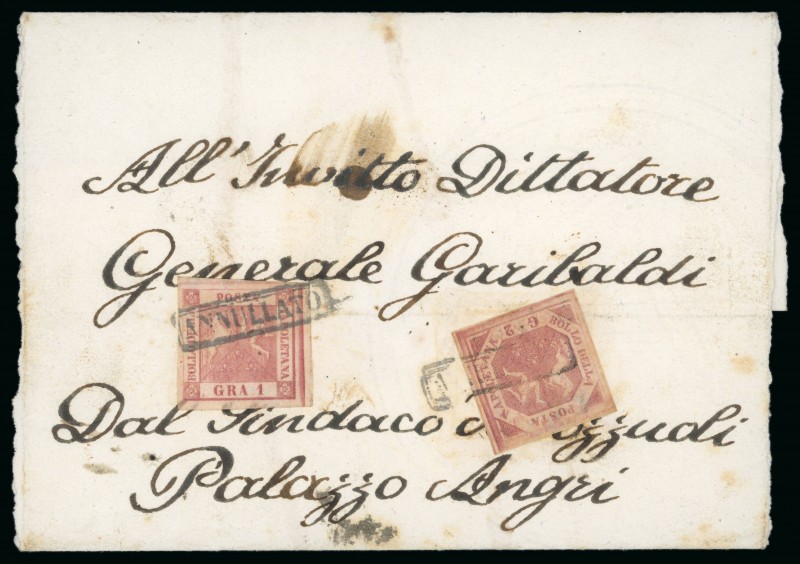 All' Invitto Dittatore
Generale Garibaldi
POSTA
ANNULLATO
BOLLO
OLETANA
GRA 1
G. 2
BOLLO DELLA
POSTA
NAPOLETANA
Dal Sindaco
Palazzo Angri